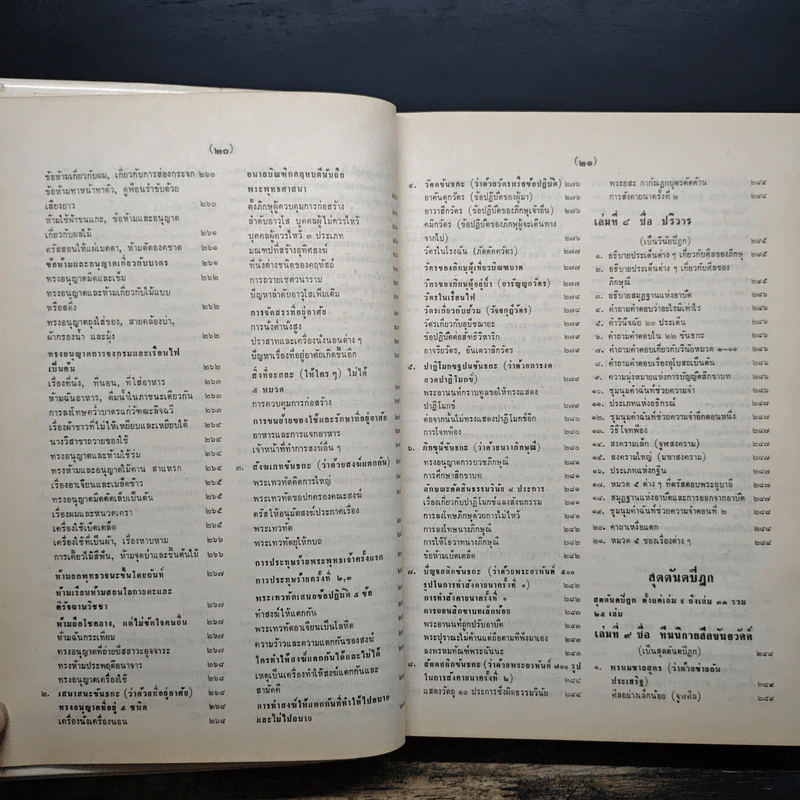 (๒๐)
ข้อห้ามเกี่ยวกับผม, เกี่ยวกับการส่องกระจก ๒๖๐
ข้อห้ามทาหน้าทาตัว, ดูฟ้อนรำขับด้วย
เสียงยาว ๒๖๐
ห้ามใช้ผ้าขนแกะ, ข้อห้ามและอนุญาต
เกี่ยวกับผลไม้ ๒๖๑
ตรัสสอนให้แผ่เมตตา, ห้ามตัดองคชาต ๒๖๑
ข้อห้ามและอนุญาตเกี่ยวกับบาตร ๒๖๒
ทรงอนุญาตมีดและเข็ม ๒๖๒
ทรงอนุญาตและห้ามเกี่ยวกับไม้แบบ
หรือสดึง ๒๖๒
ทรงอนุญาตถุงใส่ของ, สายคล้องบ่า,
ผ้ากรองน้ำ และมุ้ง ๒๖๒
ทรงอนุญาตการจงกรมและเรือนไฟ
เป็นต้น ๒๖๒
เรื่องที่นั่ง, ที่นอน, ที่ใส่อาหาร
ห้ามฉันอาหาร, ดื่มน้ำในภาชนะเดียวกัน
การลงโทษคว่ำบาตรแก่วัฑฒะลิจฉวี
เรื่องผ้าขาวที่ไม่ให้เหยียบและเหยียบได้
นางวิสาขาถวายของใช้
ทรงอนุญาตและห้ามใช้ร่ม
ทรงห้ามและอนุญาตไม้คาน สาแหรก
เรื่องอาเจียนและเมล็ดข้าว
ทรงอนุญาตมีดตัดเล็บเป็นต้น
เรื่องผมและหนวดเครา
เครื่องใช้เบ็ดเตล็ด
เครื่องใช้ที่เป็นผ้า, เรื่องหาบหาม
การเคี้ยวไม้สีฟัน, ห้ามจุดป่าและขึ้นต้นไม้
ห้ามยกพุทธวจนะขึ้นโดยฉันท์
ห้ามเรียนห้ามสอนโลกายตะและ
ดิรัจฉานวิชา
ห้ามถือโชคลาง, แต่ไม่ขัดใจคนอื่น
ห้ามฉันกระเทียม
ทรงอนุญาตที่ถ่ายปัสสาวะอุจจาระ
ทรงห้ามประพฤติอนาจาร
ทรงอนุญาตเครื่องใช้
๒. เสนาสนะขันธกะ (ว่าด้วยที่อยู่อาศัย)
ทรงอนุญาตที่อยู่ ๕ ชนิด
เครื่องนั่งเครื่องนอน
อนาถบิณฑิกคฤหบดีนับถือ
พระพุทธศาสนา
ตั้งภิกษุผู้ควบคุมการก่อสร้าง
ลำดับอาวุโส บุคคลผู้ไม่ควรไหว้
บุคคลผู้ควรไหว้ ๓ ประเภท
มณฑปที่สร้างอุทิศสงฆ์
ที่นั่งต่างชนิดของคฤหัสถ์
การถวายเชตวนาราม
ปัญหาลำดับอาวุโสเพิ่มเติม
การจัดสรรที่อยู่อาศัย
การนั่งต่ำนั่งสูง
ปราสาทและเครื่องนั่งนอนต่าง ๆ
ปัญหาเรื่องที่อยู่อาศัยเกิดขึ้นอีก
สิ่งที่จะสละ (ให้ใคร ๆ) ไม่ได้
๕ หมวด
การควบคุมการก่อสร้าง
การขนย้ายของใช้และรักษาที่อยู่อาศัย
อาหารและการแจกอาหาร
เจ้าหน้าที่ทำการสงฆ์อื่น ๆ
๓. สังฆเภทขันธกะ (ว่าด้วยสงฆ์แตกกัน)
พระเทวทัตคิดการใหญ่
พระเทวทัตขอปกครองคณะสงฆ์
ตรัสให้อนุมัติสงฆ์ประกาศเรื่อง
พระเทวทัต
พระเทวทัตยุให้กบถ
การประทุษร้ายพระพุทธเจ้าครั้งแรก
การประทุษร้ายครั้งที่ ๒,๓
พระเทวทัตเสนอข้อปฏิบัติ ๕ ข้อ
ทำสงฆ์ให้แตกกัน
พระเทวทัตอาเจียนเป็นโลหิต
ความร้าวและความแตกกันของสงฆ์
ใครทำให้สงฆ์แตกกันได้และไม่ได้
เหตุเป็นเครื่องทำให้สงฆ์แตกกันและ
สามัคคี
การทำสงฆ์ให้แตกกันที่ทำให้ไปอบาย
และไม่ไปอบาย
(๒๑)
๔. วัตตขันธกะ (ว่าด้วยวัตรหรือข้อปฏิบัติ) ๒๗๖
อาคันตุกวัตร (ข้อปฏิบัติของผู้มา) ๒๗๖
อาวาสิกวัตร (ข้อปฏิบัติของภิกษุเจ้าถิ่น) ๒๗๖
คมิกวัตร (ข้อปฏิบัติของภิกษุผู้จะเดินทาง
จากไป) ๒๗๖
วัตรในโรงฉัน (ภัตตัคควัตร) ๒๗๗
วัตรของภิกษุผู้เที่ยวบิณฑบาต ๒๗๗
วัตรของภิกษุผู้อยู่ป่า (อารัญญกวัตร) ๒๗๗
วัตรในเรือนไฟ ๒๗๘
วัตรเกี่ยวกับส้วม (วัจจกุฎีวัตร) ๒๗๘
วัตรเกี่ยวกับอุปัชฌายะ ๒๗๘
ข้อปฏิบัติต่อสัทธิวิหาริก
อาจริยวัตร, อันเตวาสิกวัตร
๕. ปาฏิโมกขฐปนขันธกะ (ว่าด้วยการงด
สวดปาฏิโมกข์) ๒๗๙
พระอานนท์กราบทูลขอให้ทรงสวด
ปาฏิโมกข์ ๒๗๙
ต่อจากนั้นไม่ทรงสวดปาฏิโมกข์อีก
การโจทฟ้อง
๖. ภิกขุนีขันธกะ (ว่าด้วยนางภิกษุณี)
ทรงอนุญาตการบวชภิกษุณี
การศึกษาสิกขาบท
ลักษณะตัดสินธรรมวินัย ๘ ประการ
เรื่องเกี่ยวกับปาฏิโมกข์และสังฆกรรม
การลงโทษภิกษุด้วยการไม่ไหว้
การลงโทษนางภิกษุณี
การให้โอวาทนางภิกษุณี
ข้อห้ามเบ็ดเตล็ด
๗. ปัญจสติกขันธกะ (ว่าด้วยพระอรหันต์ ๕๐๐
รูปในการทำสังคายนาครั้งที่ ๑)
การทำสังคายนาครั้งที่ ๑
การถอนสิกขาบทเล็กน้อย
พระอานนท์ถูกปรับอาบัติ
พระปุราณะไม่ค้านแต่ถือตามที่ฟังมาเอง
ลงพรหมทัณฑ์พระฉันนะ
๘. สัตตสติกขันธกะ (ว่าด้วยพระอรหันต์ ๗๐๐ รูป
ในการสังคายนาครั้งที่ ๒) ๒๘๔
แสดงวัตถุ ๑๐ ประการซึ่งผิดธรรมวินัย ๒๘๔
พระยสะ กากัณฑกบุตรคัดค้าน ๒๘๔
การสังคายนาครั้งที่ ๒ ๒๘๕
เล่มที่ ๘ ชื่อ ปริวาร
(เป็นวินัยปิฎก) ๒๘๕
๑. อธิบายประเด็นต่าง ๆ เกี่ยวกับศีลของภิกษุ ๒๘๕
๒. อธิบายประเด็นต่าง ๆ เกี่ยวกับศีลของ
ภิกษุณี ๒๘๕
๓. อธิบายสมุฏฐานแห่งอาบัติ ๒๘๕
๔. คำถามคำตอบว่าอะไรมีเท่าไร ๒๘๖
๕. คำวินิจฉัย ๒๐ ประเด็น ๒๘๖
๖. คำถามคำตอบใน ๒๒ ขันธกะ ๒๘๖
๗. คำถามคำตอบเกี่ยวกับวินัยหมวด ๑–๑๑ ๒๘๖
๘. คำถามคำตอบเรื่องอุโบสถเป็นต้น ๒๘๖
๙. ความมุ่งหมายแห่งการบัญญัติสิกขาบท ๒๘๖
๑๐. ชุมนุมคำฉันท์ที่ช่วยความจำ ๒๘๖
๑๑. ประเภทแห่งอธิกรณ์ ๒๘๖
๑๒. ชุมนุมคำฉันท์ที่ช่วยความจำอีกตอนหนึ่ง ๒๘๗
๑๓. วิธีโจทฟ้อง ๒๘๗
๑๔. สงครามเล็ก (จูฬสงคราม) ๒๘๗
๑๕. สงครามใหญ่ (มหาสงคราม) ๒๘๗
๑๖. ประเภทแห่งกฐิน ๒๘๗
๑๗. หมวด ๕ ต่าง ๆ ที่ตรัสตอบพระอุบาลี ๒๘๗
๑๘. สมุฏฐานแห่งอาบัติและการออกจากอาบัติ ๒๘๗
๑๙. ชุมนุมคำฉันท์ที่ช่วยความจำตอนที่ ๒ ๒๘๘
๒๐. คาถาเหงื่อแตก ๒๘๘
๒๑. หมวด ๕ ของเรื่องต่าง ๆ ๒๘๘
สุตตันตปิฎก
สุตตันตปิฎก ตั้งแต่เล่ม ๙ ถึงเล่ม ๓๓ รวม
๒๕ เล่ม
เล่มที่ ๙ ชื่อ ทีฆนิกายสีลขันธวัคค์
(เป็นสุตตันตปิฎก) ๒๘๙
๑. พรหมชาลสูตร (ว่าด้วยข่ายอัน
ประเสริฐ) ๒๘๙
ศีลอย่างเล็กน้อย (จูฬศีล) ๒๘๙